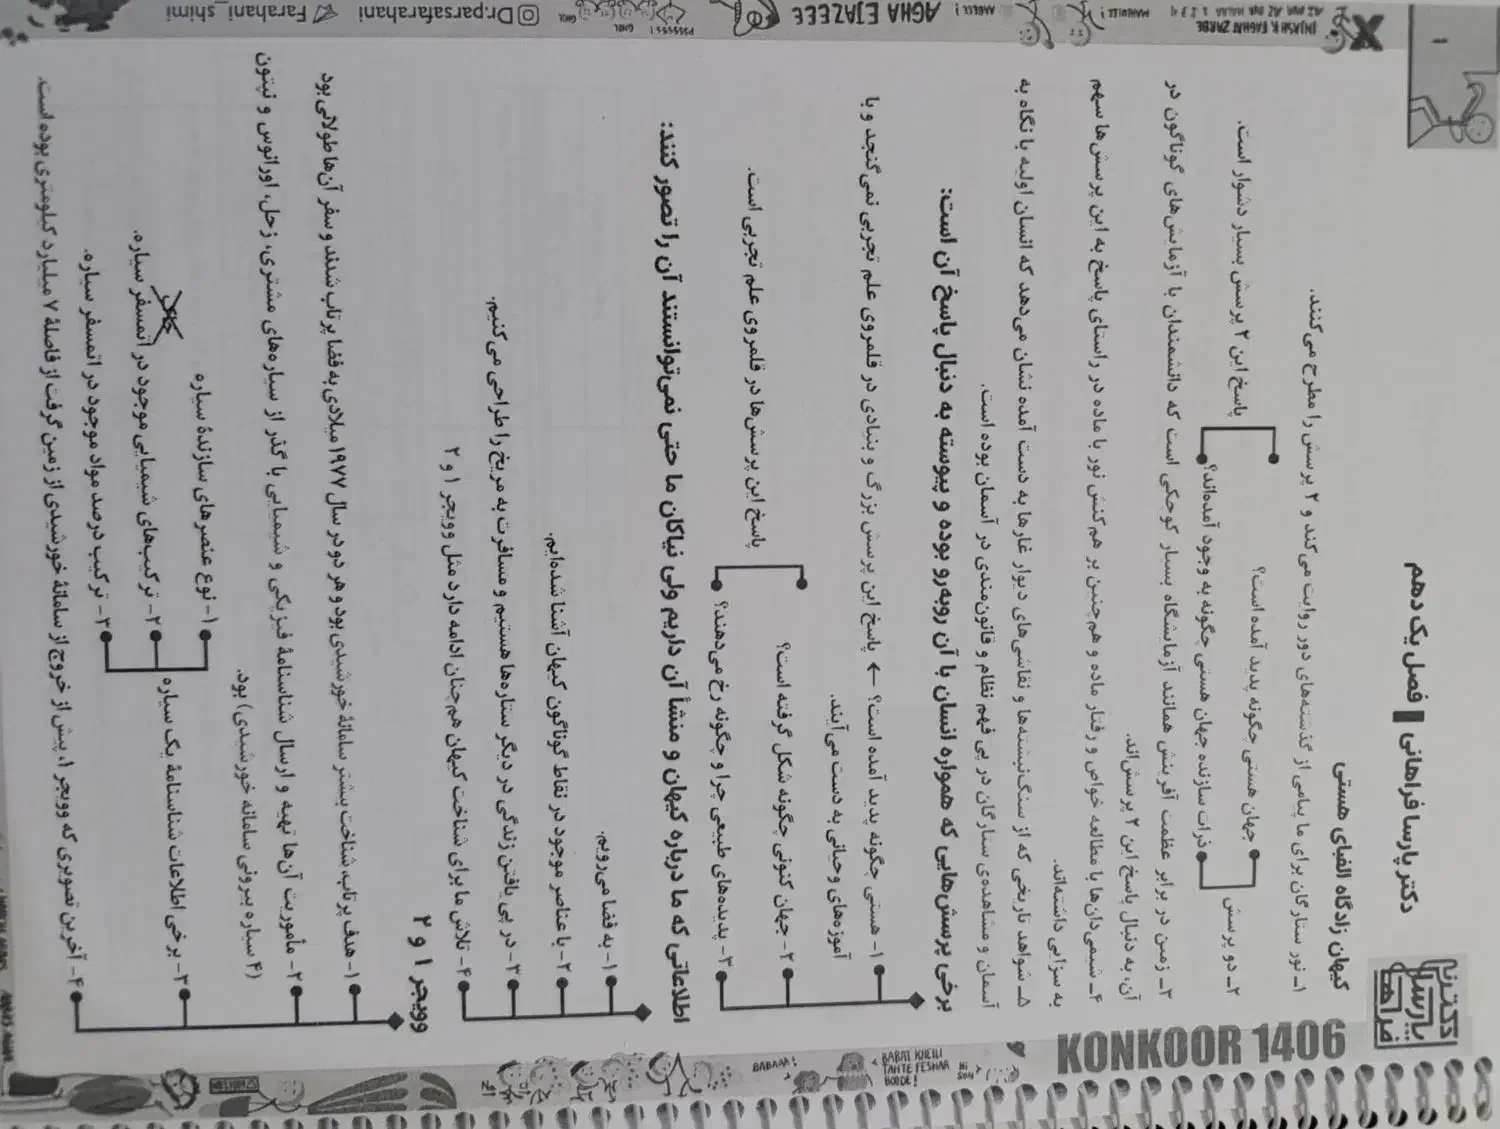 دکتر پارسا فراهانی | فصل یک دهم
دکتر پارسا فراهانی
KONKOOR 1406
کیهان زادگاه الفبای هستی
۱- نور ستارگان برای ما پیامی از گذشته‌های دور روایت می‌کند و ۲ پرسش را مطرح می‌کنند.
۲- دو پرسش
جهان هستی چگونه پدید آمده است؟
ذرات سازنده جهان هستی چگونه به وجود آمده‌اند؟
پاسخ این ۲ پرسش بسیار دشوار است.
۳- زمین در برابر عظمت آفرینش همانند آزمایشگاه بسیار کوچکی است که دانشمندان با آزمایش‌های گوناگون در
آن، به دنبال پاسخ این ۲ پرسش‌اند.
۴- شیمی‌دان‌ها با مطالعه خواص و رفتار ماده و هم‌چنین بر هم‌کنش نور با ماده در راستای پاسخ به این پرسش‌ها سهم
به سزایی داشته‌اند.
۵- شواهد تاریخی که از سنگ‌نبشته‌ها و نقاشی‌های دیوار غارها به دست آمده نشان می‌دهد که انسان اولیه با نگاه به
آسمان و مشاهده‌ی ستارگان در پی فهم نظام و قانون‌مندی در آسمان بوده است.
برخی پرسش‌هایی که همواره انسان با آن روبه‌رو بوده و پیوسته به دنبال پاسخ آن است:
۱- هستی چگونه پدید آمده است؟ ← پاسخ این پرسش بزرگ و بنیادی در قلمروی علم تجربی نمی‌گنجد و با
آموزه‌های وحیانی به دست می‌آیند.
۲- جهان کنونی چگونه شکل گرفته است؟
۳- پدیده‌های طبیعی چرا و چگونه رخ می‌دهند؟
پاسخ این پرسش‌ها در قلمروی علم تجربی است.
اطلاعاتی که ما درباره کیهان و منشأ آن داریم ولی نیاکان ما حتی نمی‌توانستند آن را تصور کنند:
۱- به فضا می‌رویم.
۲- با عناصر موجود در نقاط گوناگون کیهان آشنا شده‌ایم.
۳- در پی یافتن زندگی در دیگر ستاره‌ها هستیم و مسافرت به مریخ را طراحی می‌کنیم.
۴- تلاش ما برای شناخت کیهان هم‌چنان ادامه دارد مثل وویجر ۱ و ۲
وویجر ۱ و ۲
۱- هدف پرتاب، شناخت بیشتر سامانهٔ خورشیدی بود و هر دو در سال ۱۹۷۷ میلادی به فضا پرتاب شدند و سفر آن‌ها طولانی بود
۲- مأموریت آن‌ها تهیه و ارسال شناسنامهٔ فیزیکی و شیمیایی با گذر از سیاره‌های مشتری، زحل، اورانوس و نپتون
(۴ سیاره بیرونی سامانه خورشیدی) بود.
۳- برخی اطلاعات شناسنامهٔ یک سیاره
۱- نوع عنصرهای سازندهٔ سیاره
۲- ترکیب‌های شیمیایی موجود در اتمسفر سیاره.
۳- ترکیب درصد مواد موجود در اتمسفر سیاره.
۴- آخرین تصویری که وویجر ۱، پیش از خروج از سامانهٔ خورشیدی از زمین گرفت از فاصلهٔ ۷ میلیارد کیلومتری بوده است.
BABAAA!
BABAT KHEILI
TAHTE FESHAR
BOODE!
HI
SON
۱
AGHA EJAZEEE
Dr.parsafarahani
Farahani_shimi